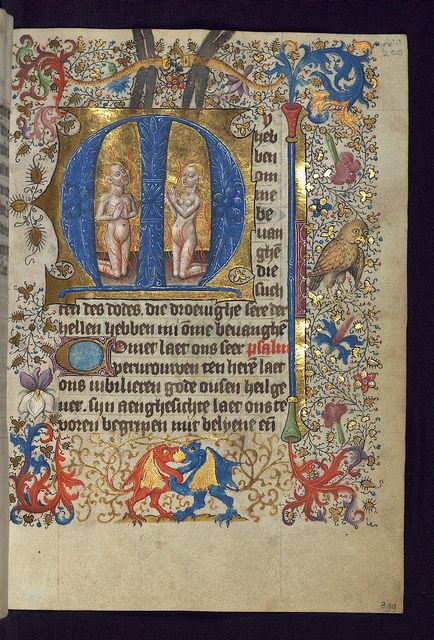 200
My
heb
ben
om
me
be
uan
ghē
die
such
ten des dodes. die droeuighe sere der
hellen hebben mi ōme beuanghē
Comet laet ons seer psalm
vervrouwen ten herē laet
ons iubilieren gode onsen heilge
uer. sijn aenghesichte laet ons te
voren begripen mit belyene eñ
399